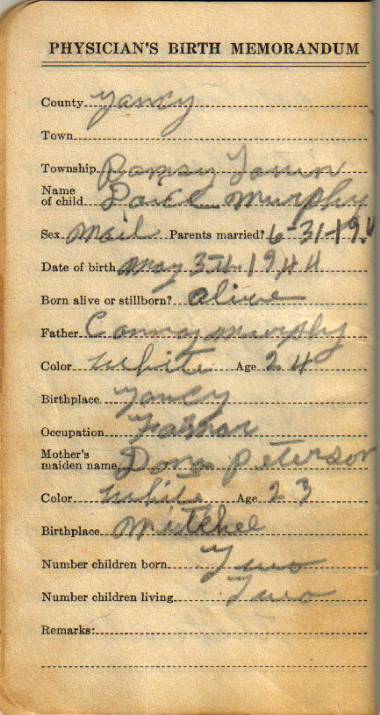 PHYSICIAN'S BIRTH MEMORANDUM
County Yancy
Town
Township Ramsy
Name
of child Murphy
Sex Mail Parents married? 6-31-19
Date of birth May 3th 1944
Born alive or stillborn? alive
Father Murphy
Color White Age 24
Birthplace Yancy
Occupation Farmar
Mother's
maiden name Dona Peterson
Color White Age 23
Birthplace Mitchel
Number children born Two
Number children living Two
Remarks: